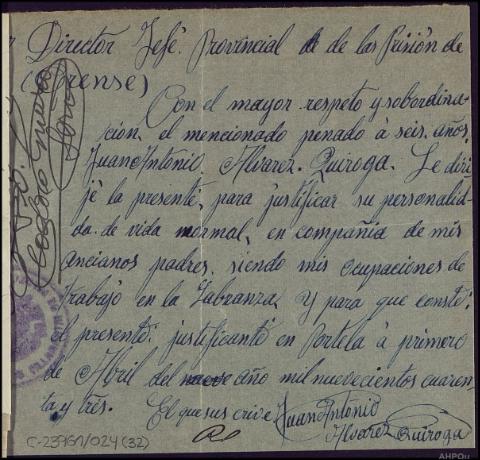 Director Jefe Provincial de de las Prisión de
(Orense)
Con el mayor respeto y sobordina-
ción, el mencionado penado á seis, años,
Juan Antonio, Alvarez-Quiroga. Le diri-
je la presente, para justificar su personalid-
da. de vida normal, en compañia de mis
ancianos padres, siendo mis ocupaciones de
trabajo en la Labranza. Y para que consté;
el presenté; justificanté en Portela á primero
de Abril del año mil nuevecientos cuaren-
ta y trés. El que sus crive Juan Antonio
Alvarez Quiroga
C-23961/024(32)
AHPOu